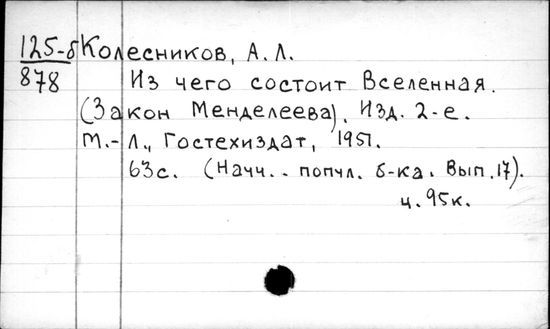 125-б Колесников, А. Л.
878 Из чего состоит Вселенная.
(Закон Менделеева). Изд. 2-е.
М.-Л., Гостехиздат, 1951.
63с. (Начч.. попчл. б-ка. Вып. 17).
ц. 95к.